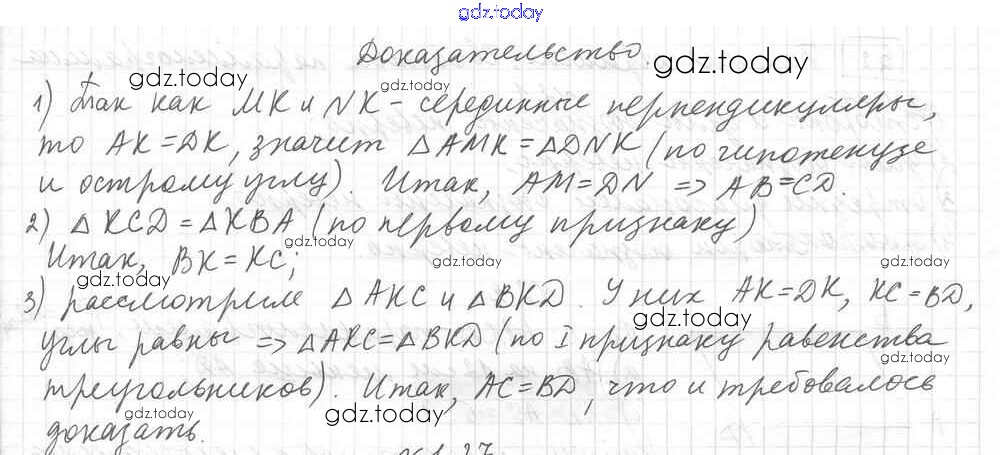 gdz.today
Доказательство.
gdz.today gdz.today
1) Так как MK и NK – серединные перпендикуляры,
gdz.today gdz.today
то AK = DK, значит △AMK = △DNK (по гипотенузе
и острому углу). Итак, AM = DN => AB = CD.
gdz.today gdz.today
2) △KCD = △KBA (по первому признаку)
gdz.today
Итак, BK = KC;
gdz.today gdz.today
3) рассмотрим △AKC и △BKD. У них AK = DK, KC = BD,
gdz.today
углы равны => △AKC = △BKD (по I признаку равенства
gdz.today gdz.today
треугольников). Итак, AC = BD, что и требовалось
gdz.today gdz.today gdz.today
доказать.